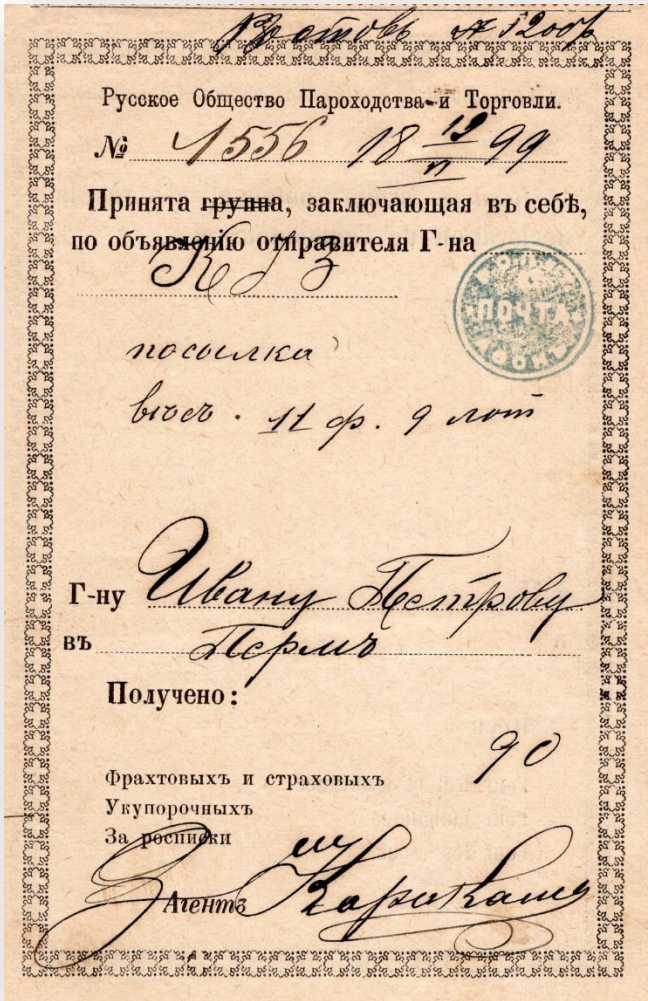 Русское Общество Пароходства и Торговли.
№ 1556 18 19/II 99
Принята группа, заключающая въ себѣ,
по объявленію отправителя Г-на
посылка
вѣсъ. 11 ф. 9 лот
ПОЧТА
Г-ну Ивану Петрову
въ Пермь
Получено:
90
Фрахтовыхъ и страховыхъ
Укупорочныхъ
За росписки
Агентъ